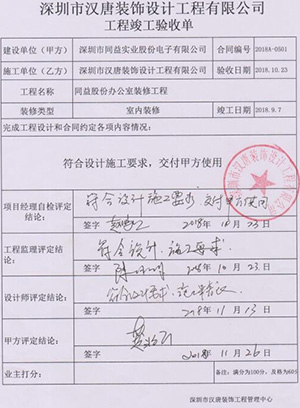 深圳市汉唐装饰设计工程有限公司
工程竣工验收单
建设单位（甲方） 深圳市同益实业股份电子有限公司 合同编号 2018A-0501
施工单位（乙方） 深圳市汉唐装饰设计工程有限公司 验收日期 2018.10.23
工程名称 同益股份办公室装修工程
装修类型 室内装修 竣工日期 2018.9.7
完成工程设计和合同约定各项内容情况：
符合设计施工要求，交付甲方使用
项目经理自检评定结论：
符合设计施工要求，交付甲方使用
签字 2018年10月23日
工程监理评定结论：
符合设计、施工要求.
签字 2018年10月23日
设计师评定结论：
签字 2018年11月13日
甲方评定结论：
签字 2018年11月26日
业主打分： 备注：满分为100分，及格为60分
深圳市汉唐装饰工程管理中心